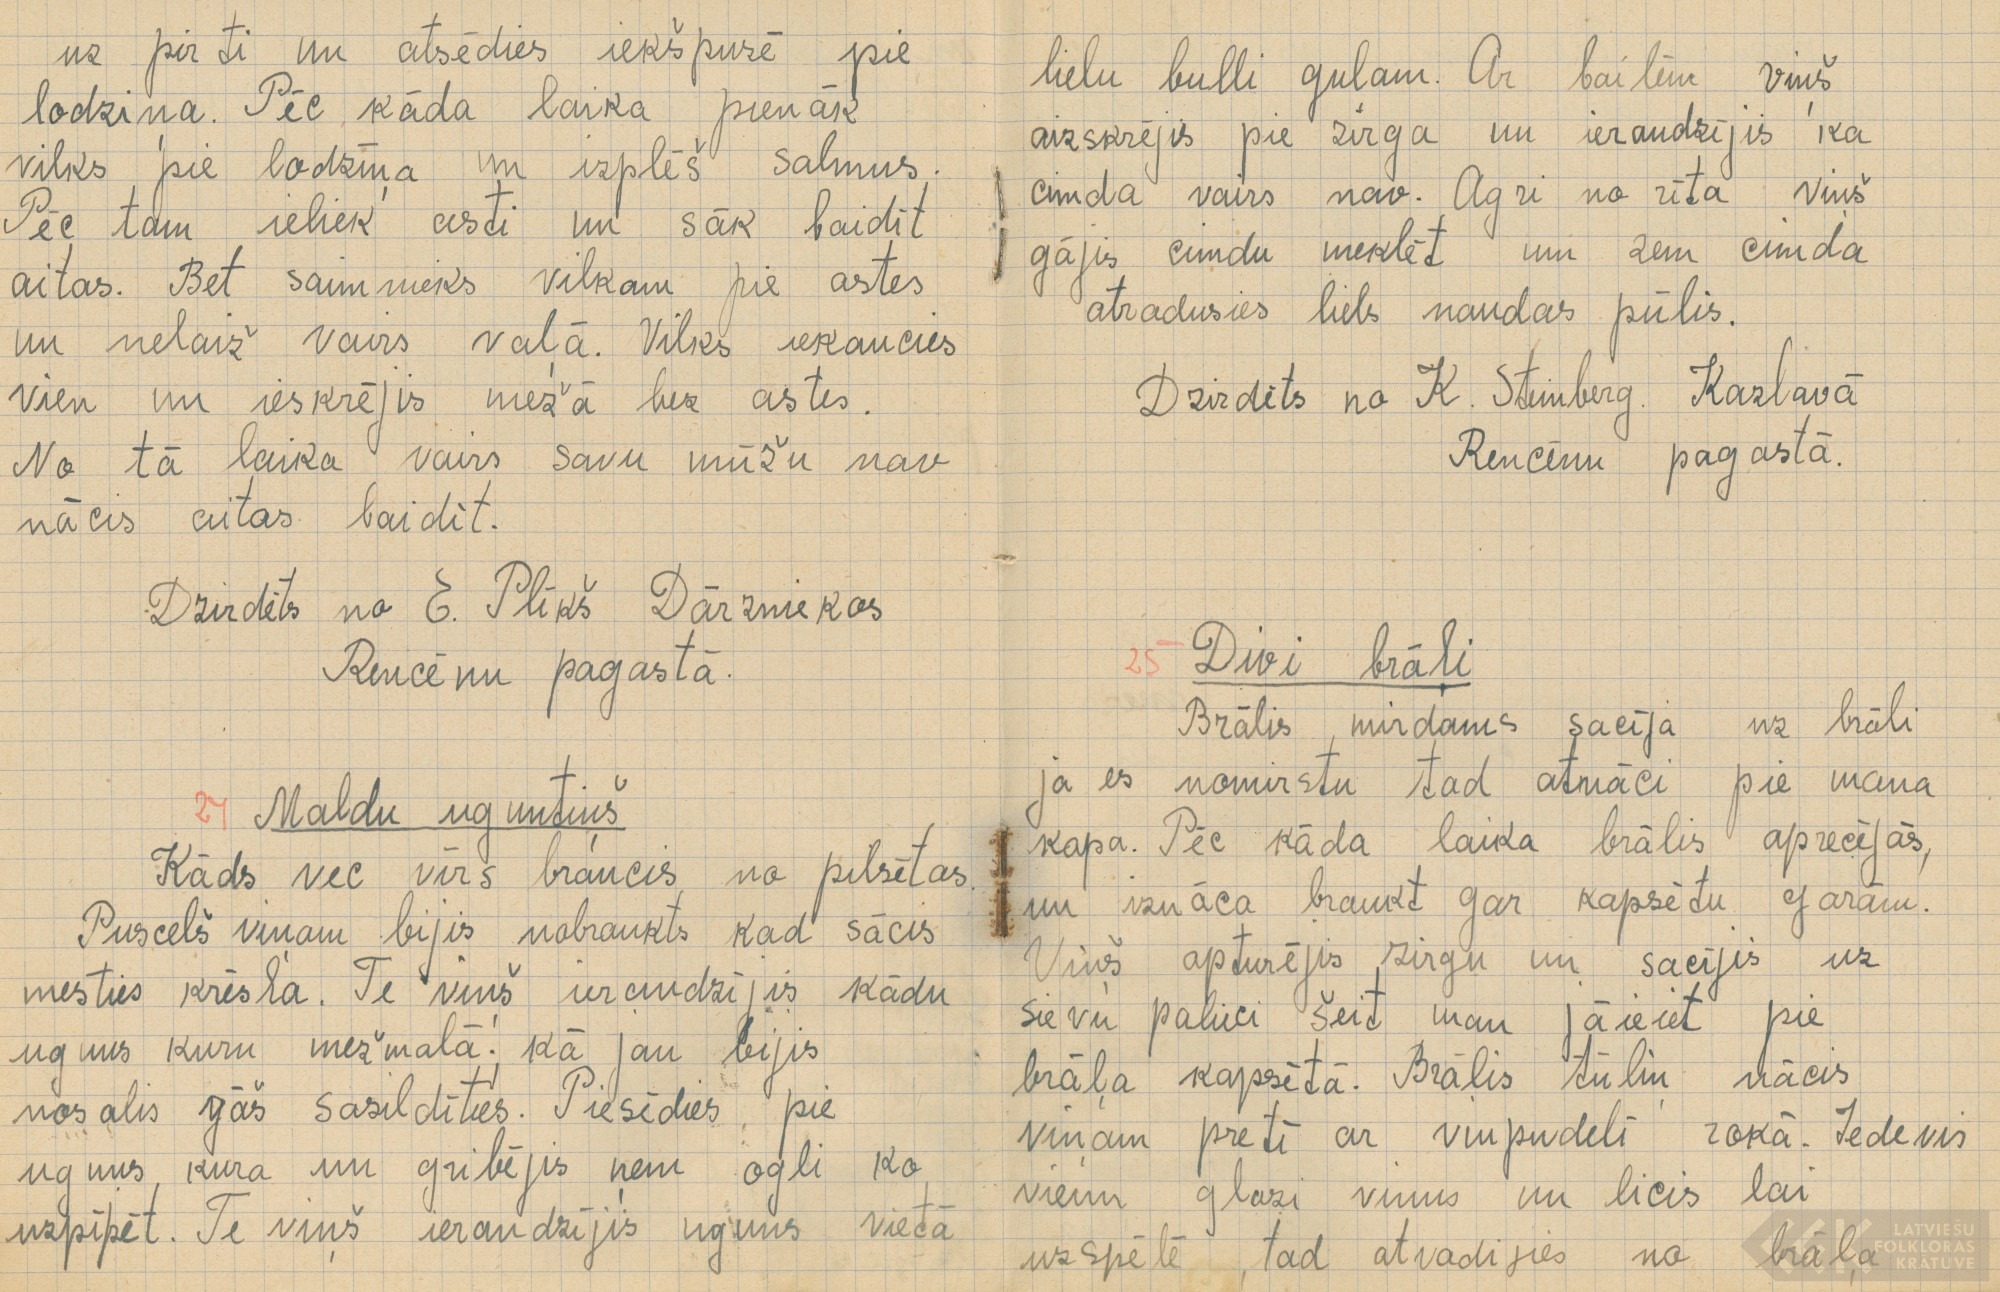 uz pirti un atsēdies iekšpusē pie
lodziņa. Pēc kāda laika pienāk
vilks pie lodziņa un izplēš salmus.
Pēc tam ieliek asti un sāk baidīt
aitas. Bet saimnieks vilkam pie astes
un nelaiž vairs vaļā. Vilks iekaucies
vien un ieskrējis mežā bez astes.
No tā laika vairs savu mūžu nav
nācis aitas baidīt.
Dzirdēts no E. Plīkš Dārzniekos
Rencēnu pagastā.
24 Maldu uguntiņš
Kāds vec vīrs braucis no pilsētas.
Pusceļš viņam bijis nobraukts kad sācis
mesties krēsla. Te viņš ieraudzījis kādu
uguns kuru mežmalā. kā jau bijis
nosalis gāš sasildīties. Piesēdies pie
uguns kura un gribējis ņem ogli ko
uzpīpēt. Te viņš ieraudzījis uguns vietā
lielu bulli guļam. Ar bailēm viņš
aizskrējis pie zirga un ieraudzījis ka
cimda vairs nav. Agri no rīta viņš
gājis cimdu meklēt un zem cimda
atradusies liels naudas pūlis.
Dzirdēts no K. Steinberg. Kazlavā
Rencēnu pagastā.
25 Divi brāļi
Brālis mirdams sacīja uz brāli
ja es nomirstu tad atnāci pie mana
kapa. Pēc kāda laika brālis aprecējās,
un iznāca braukt gar kapsētu garām.
Viņš apturējis zirgu un sacījis uz
sievu palieci šeit man jāieiet pie
brāļa kapsētā. Brālis tūliņ nācis
viņam pretī ar vīnpudeli rokā. Iedevis
vienu glazi vīnus un licis lai
uzspēlē, tad atvadijies no brāļa
LATVIEŠU
FOLKLORAS
KRĀTUVE